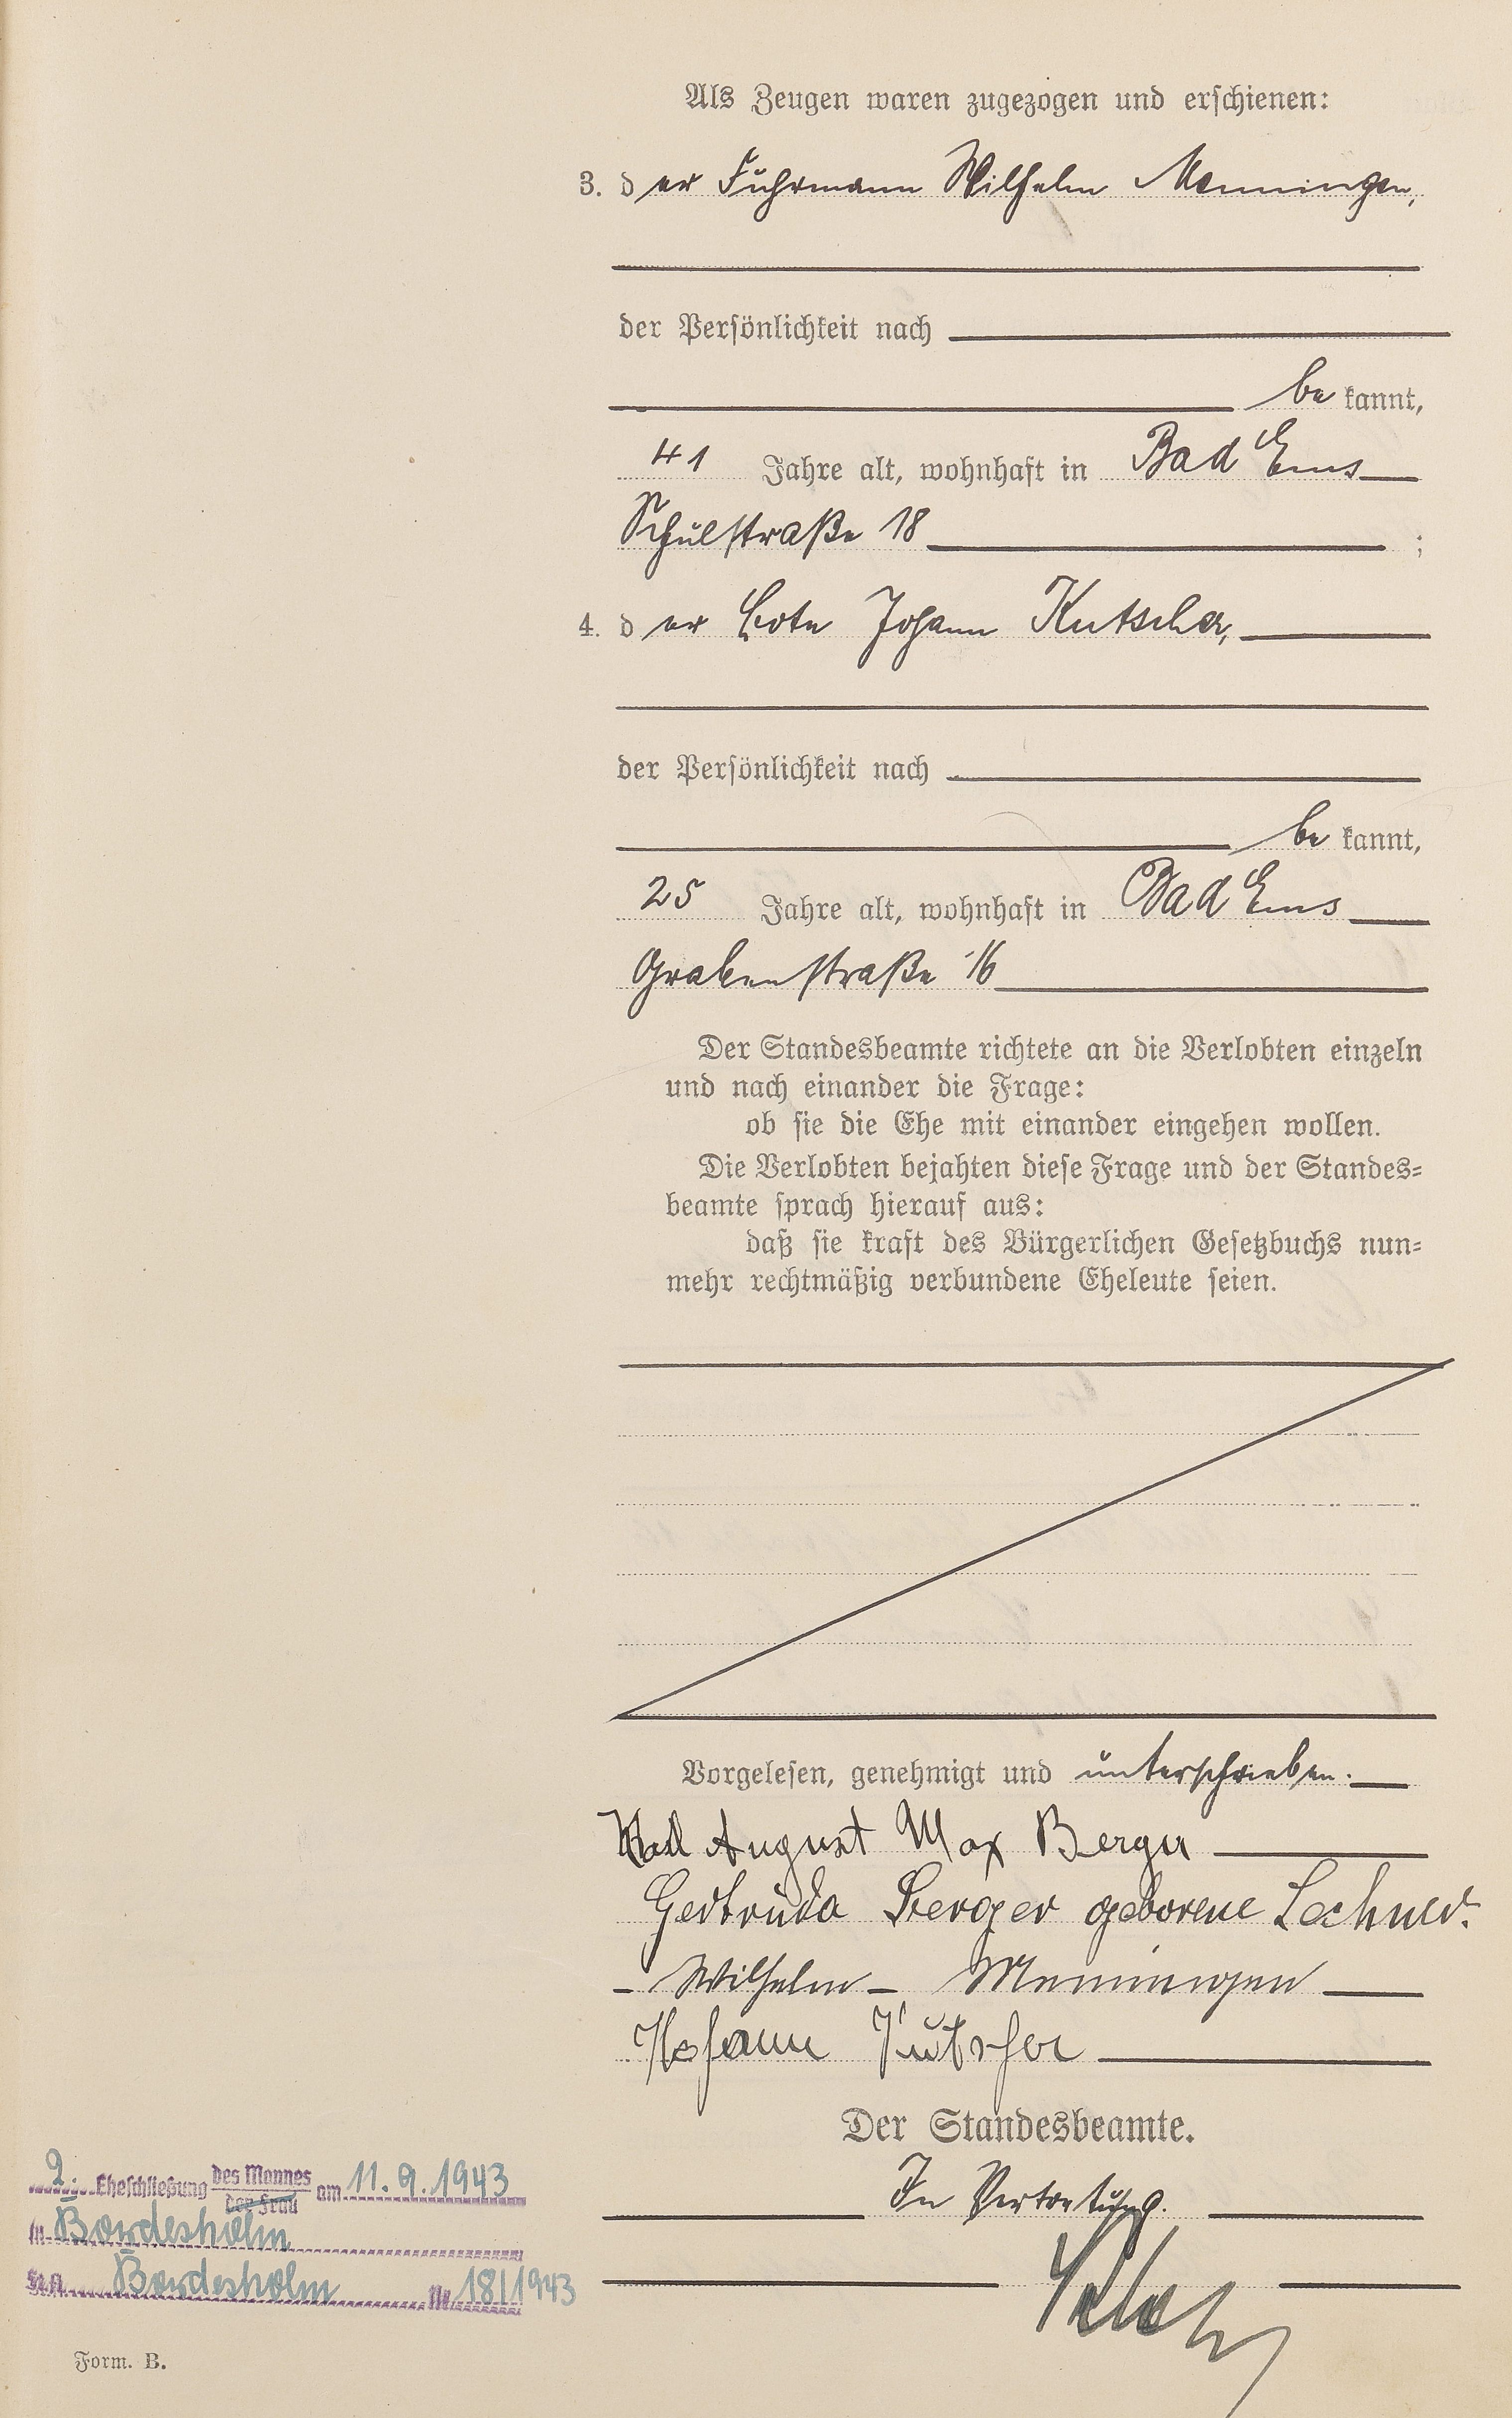 Als Zeugen waren zugezogen und erschienen:
3. der Fuhrmann Wilhelm Menningen,
der Persönlichkeit nach
be kannt,
41 Jahre alt, wohnhaft in Bad Ems
Schulstraße 18 ;
4. der Bote Johann Kutscher,
der Persönlichkeit nach
be kannt,
25 Jahre alt, wohnhaft in Bad Ems
Grabenstraße 16
Der Standesbeamte richtete an die Verlobten einzeln
und nach einander die Frage:
ob sie die Ehe mit einander eingehen wollen.
Die Verlobten bejahten diese Frage und der Standes=
beamte sprach hierauf aus:
daß sie kraft des Bürgerlichen Gesetzbuchs nun=
mehr rechtmäßig verbundene Eheleute seien.
Vorgelesen, genehmigt und unterschrieben.
Karl August Max Berger
Gertruda Berger geborene Lechner.
Wilhelm Menningen
Johann Kutscher
Der Standesbeamte.
In Vertretung.
2. Eheschließung des Mannes der Frau am 11.9.1943
in Bordesholm
St.A. Bordesholm Nr 18/1943
Form. B.